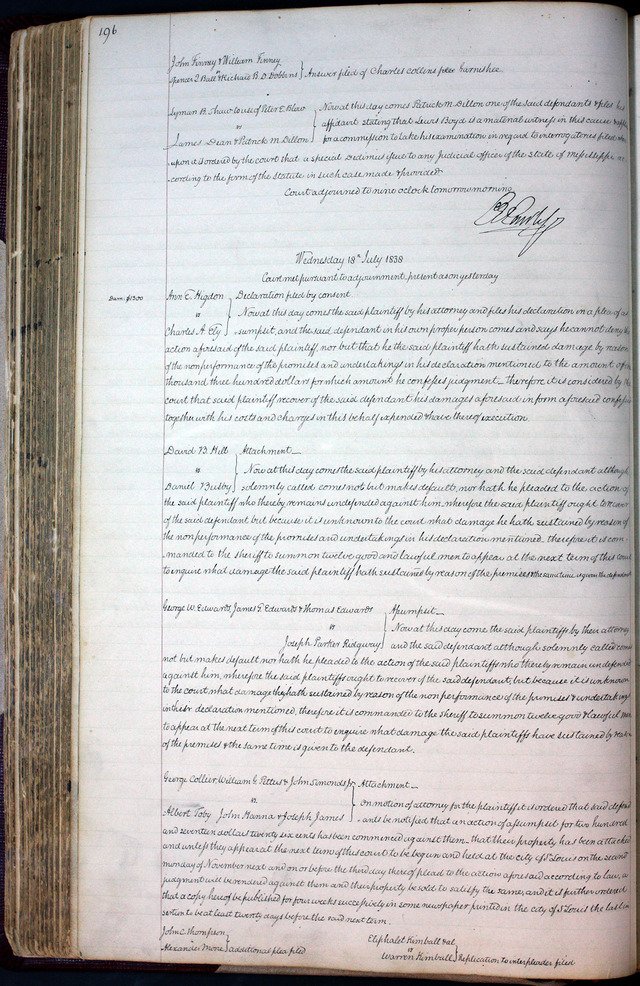 196
John Finney & William Finney
Spencer T. Ball & Richard B. D. Dobbins } Answer filed of Charles Collins for garnishee
Lyman B. Shaw to use of Peter E. Blow } Now at this day comes Patrick M. Dillon one of the said defendants & files his
vs affidavit stating that Lewis Boyd is a material witness in this cause &
James Dean & Patrick M. Dillon for a commission to take his examination in regard to interrogatories filed, where
upon it is ordered by the court that a special Dedimus issue to any Judicial officer of the State of Mississippi ac
cording to the form of the Statute in such case made & provided
Court adjourned to nine oclock tomorrow morning
Wednesday 18th July 1838
Court met pursuant to adjournment, present as on yesterday
Dam: $1300
Ann E. Higdon } Declaration filed by consent
vs Now at this day comes the said plaintiff by his attorney and files his declaration in a plea of as
Charles A. Ely sumpsit, and the said defendant in his own proper person comes and says he cannot deny the
action aforesaid of the said plaintiff, nor but that he the said plaintiff hath sustained damage by reason
of the nonperformance of the promises and undertakings in his declaration mentioned to the amount of
thousand three hundred dollars for which amount he confesses judgment – therefore it is considered by the
court that said plaintiff recover of the said defendant his damages aforesaid in form aforesaid confess
together with his costs and charges in this behalf expended & have thereof execution.
David B. Hill } Attachment –
vs Now at this day comes the said plaintiff by his attorney and the said defendant although
Daniel Busby solemnly called comes not but makes default, nor hath he pleaded to the action of
the said plaintiff who thereby remains undefended against him, wherefore the said plaintiff ought to recover
of the said defendant but because it is unknown to the court what damage he hath sustained by reason of
the nonperformance of the promises and undertakings in his declaration mentioned, therefore it is com
manded to the sheriff to summon twelve good and lawful men to appear at the next term of this court
to enquire what damage the said plaintiff hath sustained by reason of the premises & the same time is given the defendant
George W. Edwards, James G. Edwards & Thomas Edwards } Assumpsit –
vs Now at this day come the said plaintiffs by their attorney
Joseph Parker Ridgway and the said defendant although solemnly called comes
not but makes default nor hath he pleaded to the action of the said plaintiffs who thereby remain undefended
against him, wherefore the said plaintiffs ought to recover of the said defendant, but because it is unknown
to the court what damage they hath sustained by reason of the nonperformance of the promises & undertakings
in their declaration mentioned, therefore it is commanded to the sheriff to summon twelve good & lawful men
to appear at the next term of this court to enquire what damage the said plaintiffs have sustained by reason
of the premises & the same time is given to the defendant.
George Collier, William G. Pettus & John Simonds Jr } Attachment –
vs. on motion of attorney for the plaintiff it is ordered that said defend
Albert Toby John Hanna & Joseph James ants be notified that an action of assumpsit for two hundred
and seventeen dollars twenty six cents has been commenced against them – that their property has been attached
and unless they appear at the next term of this court to be begun and held at the city of St Louis on the second
monday of November next and on or before the third day thereof plead to the action aforesaid according to law, a
judgment will be rendered against them and their property be sold to satisfy the same, and it is further ordered
that a copy hereof be published for four weeks successively in some newspaper printed in the city of St Louis the last in
sertion to be at least twenty days before the said next term.
John C. Thompson
vs
Alexander } additional plea filed
Eliphalet Kimball & al
vs
Warren Kimball } Replication to interpleader filed